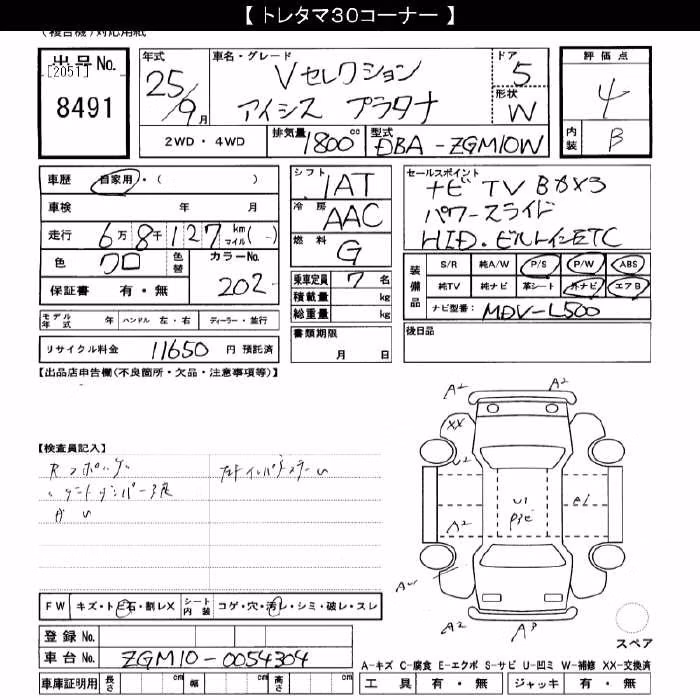 【 トレタマ30コーナー 】
(複合機)対応用紙
出品No.
[2051]
8491
年式
25/9月
車名・グレード
Vセレクション
アイシス プラタナ
ドア
5
形状
W
評価点
4
内装
B
2WD・4WD
排気量
1800cc
型式
DBA-ZGM10W
車歴
自家用・( )
車検 年 月
走行 6万8千127 km マイル(-)
色 クロ
色替
カラーNo.
202
保証書 有・無
シフト
IAT
冷房
AAC
燃料
G
乗車定員 7 名
積載量 kg
総重量 kg
セールスポイント
ナビ TV Bカメラ
パワースライド
HID.ビルトインETC
装備品
S/R 純A/W P/S P/W ABS
純TV 純ナビ 革シート 外ナビ エアB
ナビ型番: MDV-L500
モデル年式 年 ハンドル 左・右 ディーラー・並行
リサイクル料金 11650 円 預託済
書類期限
月 日
後日品
【出品店申告欄(不良箇所・欠品・注意事項等)】
A2
A2
XX
U2
A2
U1
e1
A2
A3
【検査員記入】
FW キズ・トビ石・割レX
シート内装 コゲ・穴・汚レ・シミ・破レ・スレ
登録No.
車台No. ZGM10-0054304
車庫証明用 長さ cm 幅 cm 高さ cm
スペア
A-キズ C-腐食 E-エクボ S-サビ U-凹ミ W-補修 XX-交換済
工具 有・無 ジャッキ 有・無